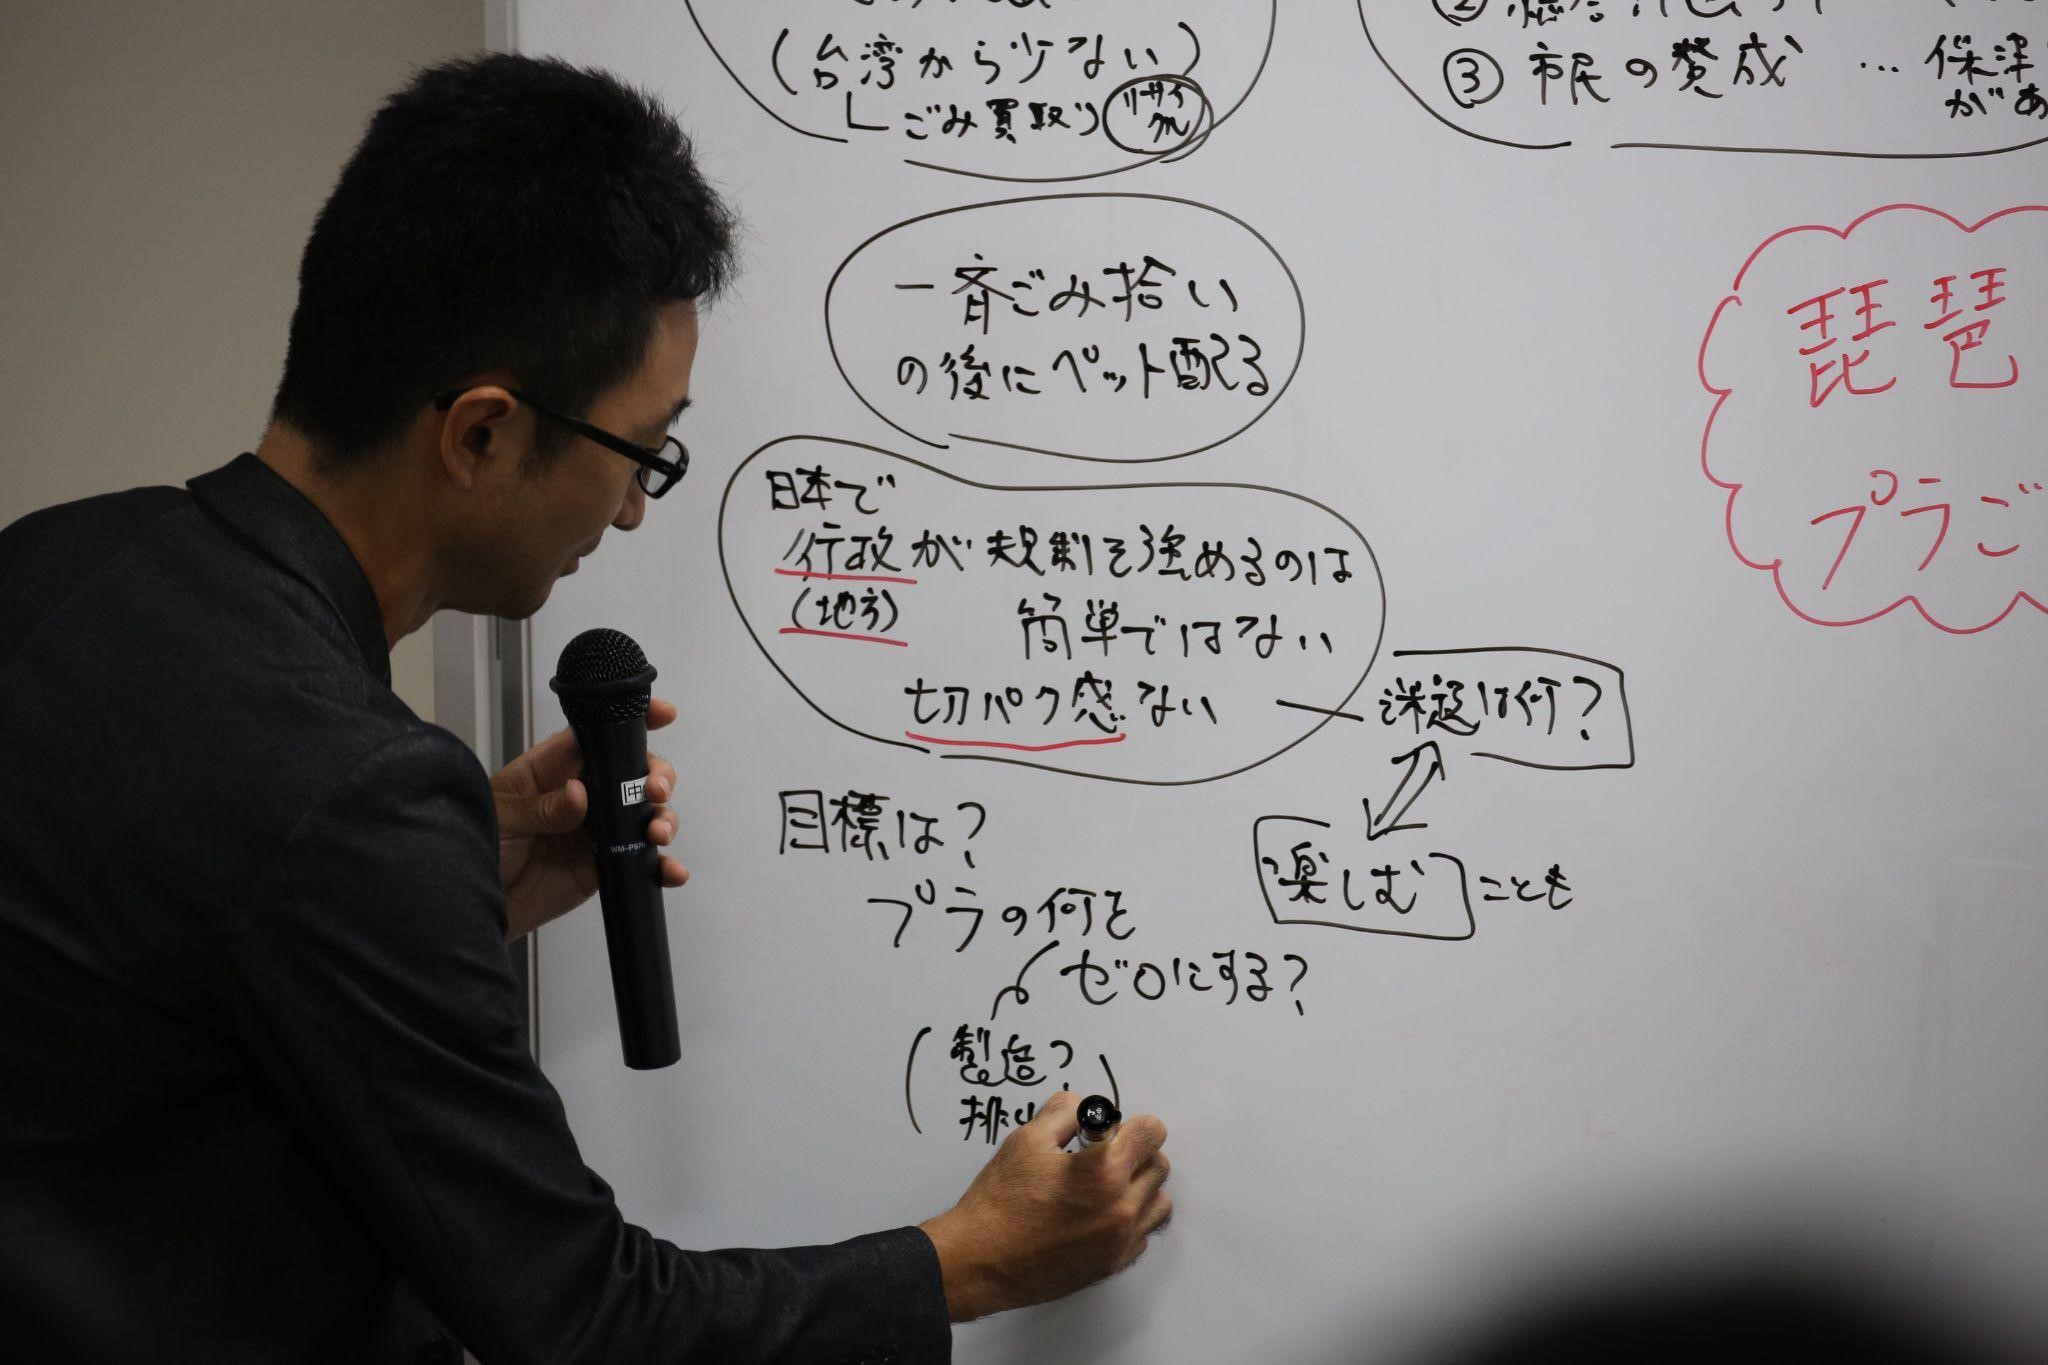 (台湾から少ない)
ごみ買取り
リサイクル
③ 市民の賛成 … 保津
があ
一斉ごみ拾い
の後にペット配る
琵琶
プラご
日本で
行政が規制を強めるのは
(地方)
簡単ではない
切パク感ない
課題は何?
目標は?
楽しむ ことも
プラの何を
ゼロにする?
(製造?)
排
中
WM-P970